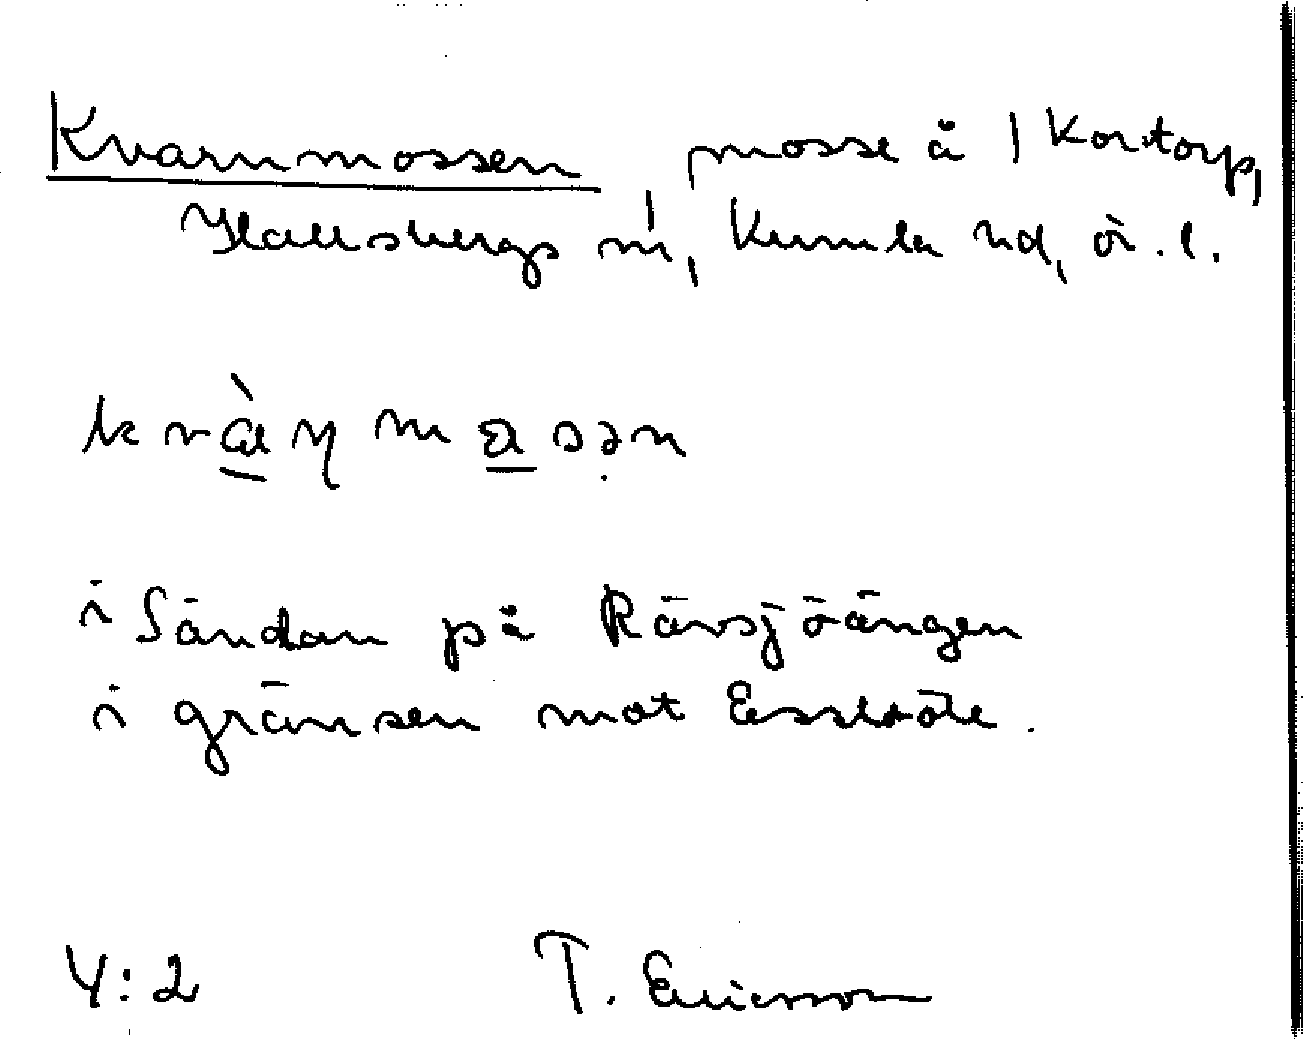 Kvarnmossen mosse å 1 Kortorp,
Hallsbergs sn, Kumla hd, ör. l.
i Sändan på Rävsjöängen
i gränsen mot
4:2 T. Ericsson